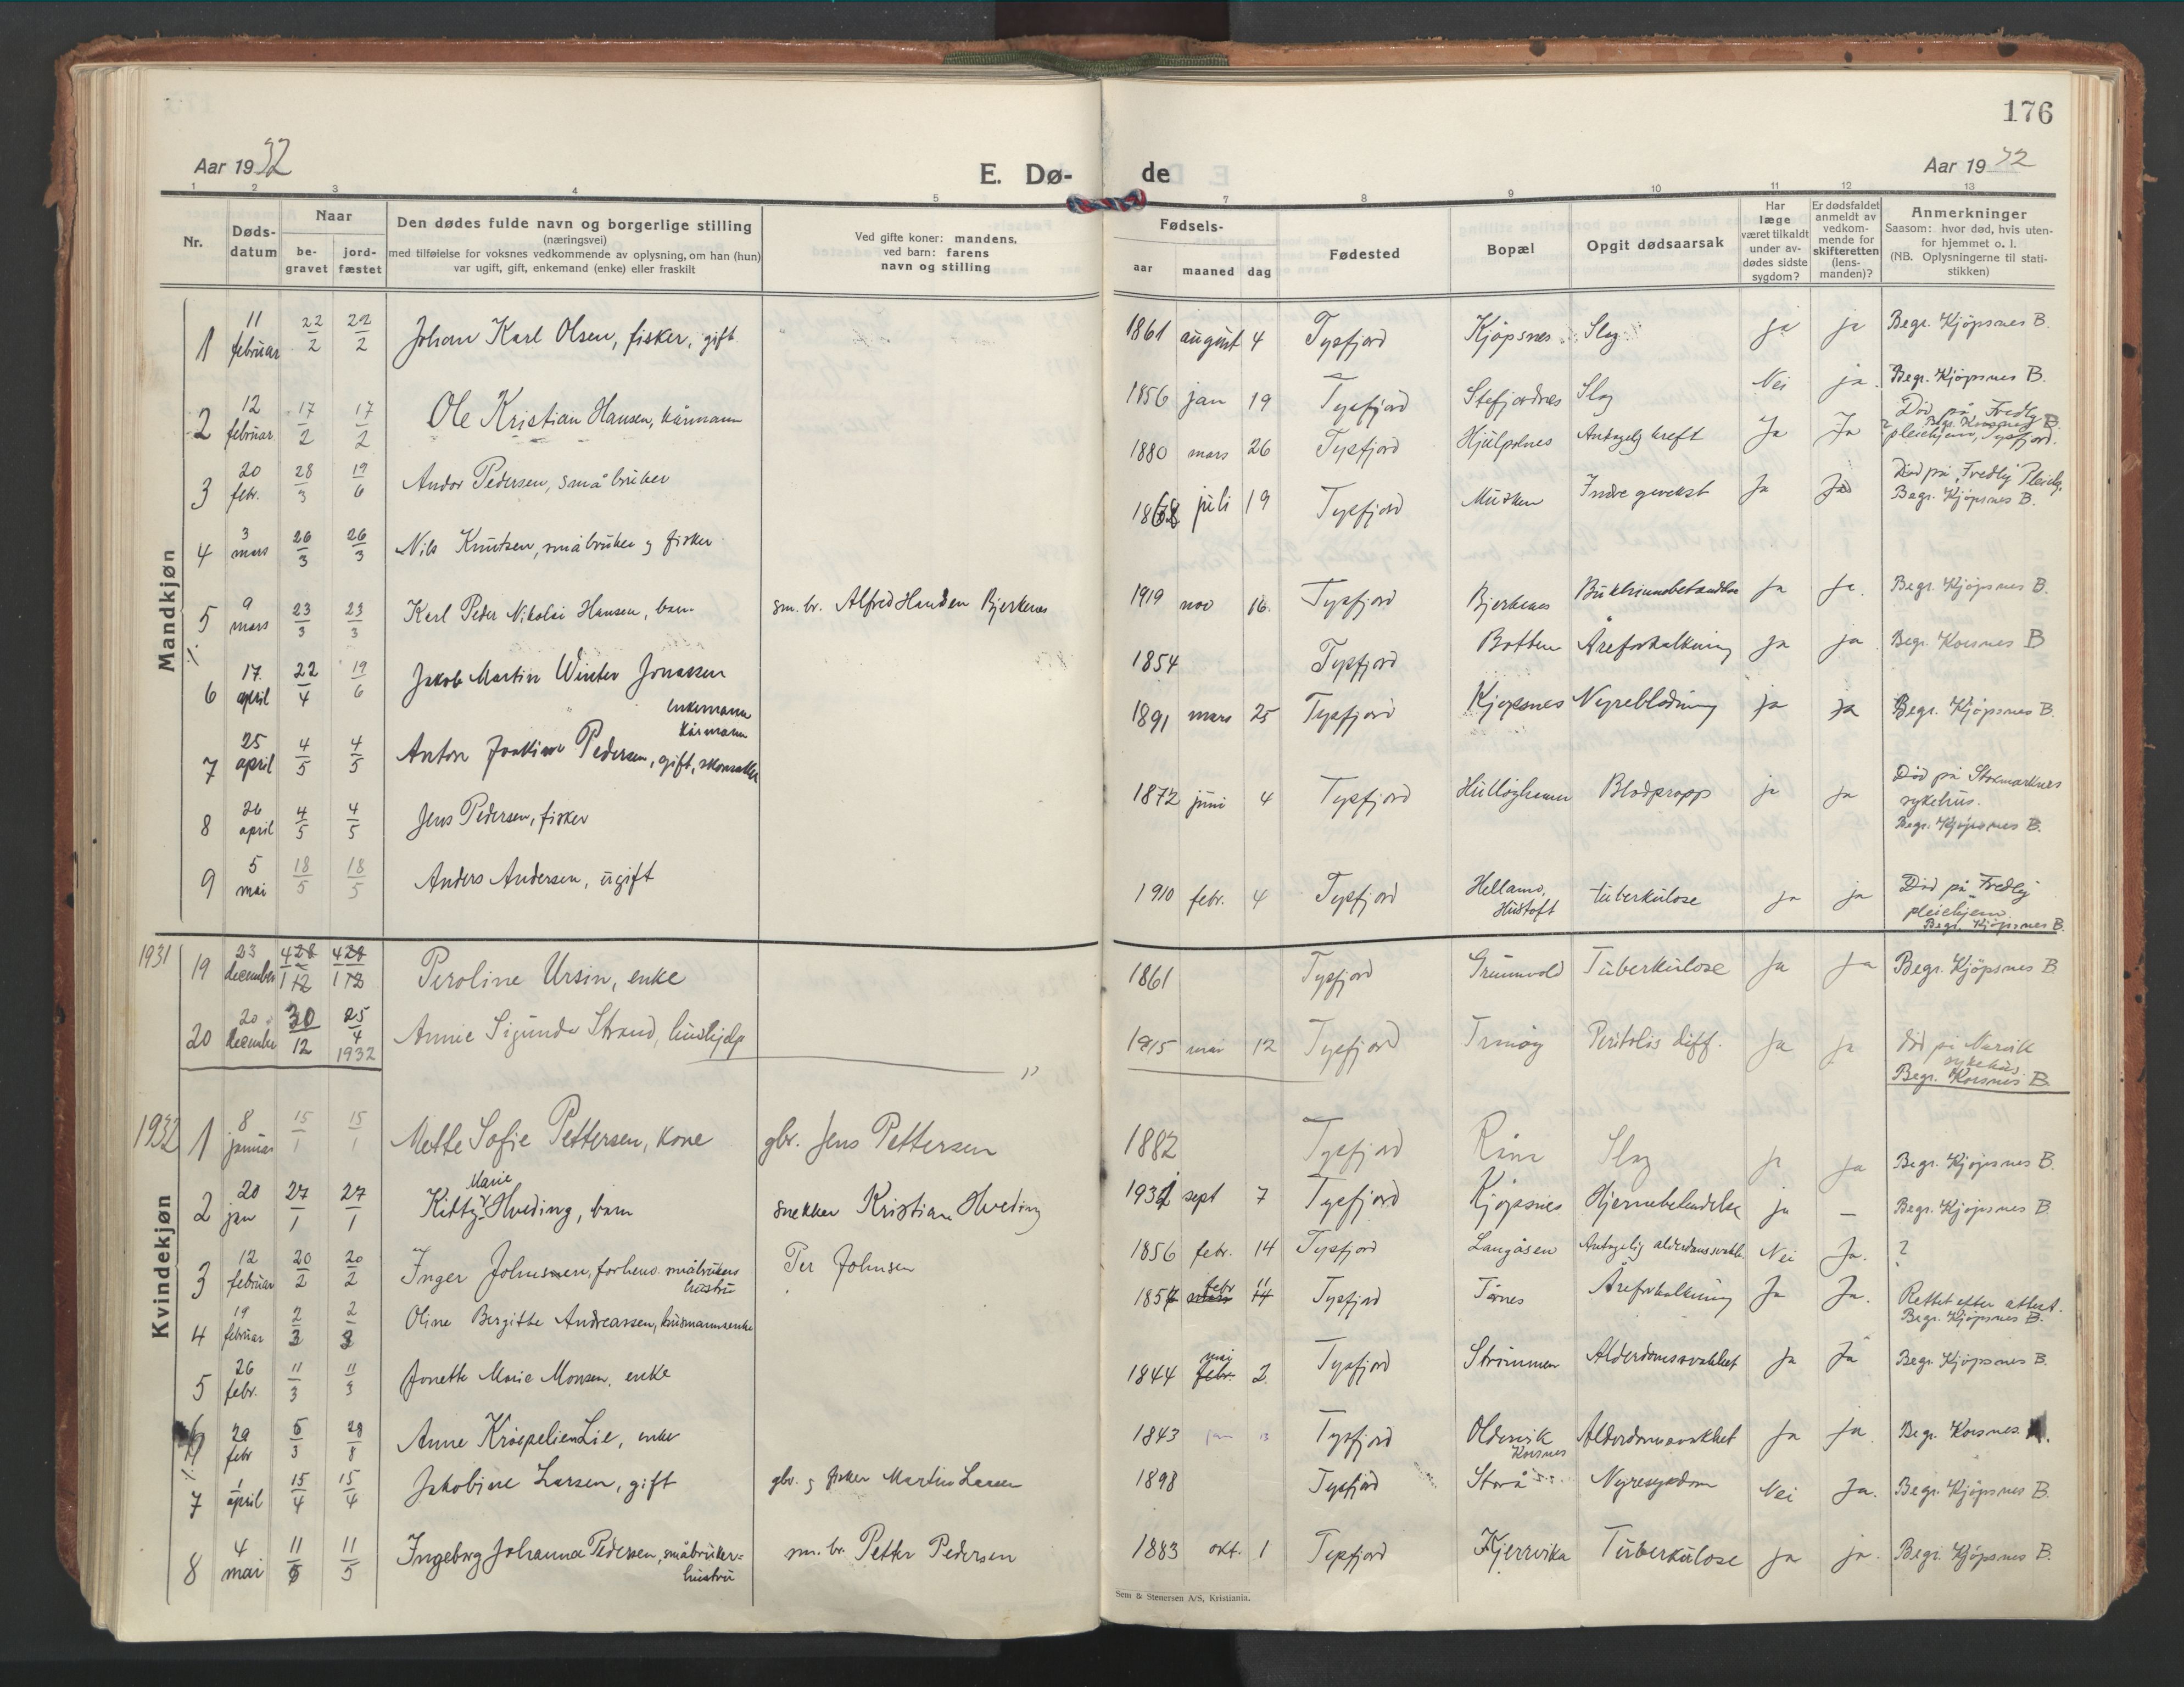 176
Aar 1932
E. Dø-
de
Aar 1932
1 2 3 4 5 7 8 9 10 11 12 13
Nr.
Døds-
datum
Naar
be-
gravet
jord-
fæstet
Den dødes fulde navn og borgerlige stilling
(næringsvei)
med tilføielse for voksnes vedkommende av oplysning, om han (hun)
var ugift, gift, enkemand (enke) eller fraskilt
Ved gifte koner: mandens,
ved barn: farens
navn og stilling
Fødsels-
aar maaned dag
Fødested
Bopæl
Opgit dødsaarsak
Har
læge
været tilkaldt
under av-
dødes sidste
sygdom?
Er dødsfaldet
anmeldt av
vedkom-
mende for
skifteretten
(lens-
manden)?
Anmerkninger
Saasom: hvor død, hvis uten-
for hjemmet o. l.
(NB. Oplysningerne til stati-
stikken)
Mandkjøn
1 11 februar 22/2 22/2 Johan Karl Olsen, fisker, gift 1861 august 4 Tysfjord Kjöpsnes Slag ja ja Begr. Kjöpsnes B.
2 12 februar 17/2 17/2 Ole Kristian Hansen, kårmann 1856 jan 19 Tysfjord Stefjordnes Slag Nei ja Begr. Kjöpsnes B.
3 20 febr. 28/3 19/6 Andor Pedersen, småbruker 1880 mars 26 Tysfjord Hjulpsnes Antagelig kreft Ja Ja Död på Fredly
pleiehjem, Tysfjord.
Begr. Korsnes B.
4 3 mars 26/3 26/3 Nils Knutsen, småbruker og fisker 1868 juli 19 Tysfjord Musken Indre gevekst Ja Ja Död på "Fredly" Pleiehj.
Begr. Kjöpsnes B.
5 9 mars 23/3 23/3 Karl Peder Nikolai Hansen, barn sm.br. Alfred Hansen Bjerknes 1919 nov 16. Tysfjord Bjerknes Bukhinnebetendelse Ja Ja. Begr. Kjöpsnes B.
6 17. april 22/4 19/6 Jakob Martin Winter Jonassen
enkemann
kårmann 1854 Tysfjord Botten Åreforkalkning ja ja Begr. Korsnes B
7 25 april 4/5 4/5 Anton Joakim Pedersen, gift, skomaker 1891 mars 25 Tysfjord Kjöpsnes Nyreblödning ja ja Begr. Kjöpsnes B.
8 26 april 4/5 4/5 Jens Pedersen, fisker 1872 juni 4 Tysfjord Hulløyhamn Blodpropp ja ja Död på Stokmarknes
sykehus.
Begr. Kjöpsnes B.
9 5 mai 18/5 18/5 Anders Andersen, ugift 1910 febr. 4 Tysfjord Hellamo,
Hustoft tuberkulose ja ja Död på Fredly
pleiehjem
Begr. Kjöpsnes B.
1931 19 23 december 4/1 4/1 Peroline Ursin, enke 1861 Tysfjord Grunnvold Tuberkulose Ja Ja Begr. Kjöpsnes B.
20 20 december 30/12 25/4 1932 Annie Sigunda Strand, hushjelp 1915 mai 12 Tysfjord Tranöy Peritolis diff. Ja ja död på Narvik
sykehus
Begr. Korsnes B.
1932
Kvindekjøn
1 8 januar 15/1 15/1 Mette Sofie Pettersen, kone gbr. Jens Pettersen 1882 Tysfjord Slag ja ja Begr. Kjöpsnes B.
2 20 jan 27/1 27/1 Kitty Marie Hveding, barn snekker Kristian Hveding 1931 sept 7 Tysfjord Kjöpsnes Hjernebetendelse ja — Begr. Kjöpsnes B
3 12 februar 20/2 20/2 Inger Johnsen, forhenv. småbrukers
hustru Per Johnsen 1856 febr. 14 Tysfjord Langåsen Antagelig alderdomssvakh. Nei Ja. ?
4 19 februar 2/3 2/3 Oline Bergitte Andreassen, husmannsenke 1857 mars febr 14 11 Tysfjord Tårnes Åreforkalkning Ja Ja. Rettet efter attest.
Begr. Kjöpsnes B.
5 26 febr. 11/3 11/3 Jonette Marie Monsen, enke 1844 febr. mai 2. Tysfjord Strömmen Alderdomssvakhet ja Ja Begr. Kjöpsnes B.
6 29 febr 5/3 28/8 Anne Kröepelien Lie, enke 1843 jan 13 Tysfjord Oldervik
Korsnes Alderdomssvakhet Ja ja Begr. Korsnes
7 1 april 15/4 15/4 Jakobine Larsen, gift gbr. og fisker Martin Larsen 1898 Tysfjord Storå Nyresykdom Nei Ja. Begr. Kjöpsnes B.
8 4 mai 11/5 11/5 Ingeborg Johanna Pedersen, småbruker-
hustru sm.br. Petter Pedersen 1883 okt. 1 Tysfjord Kjerrvika Tuberkulose ja ja. Begr. Kjöpsnes B.
Sem & Stenersen A/S, Kristiania.